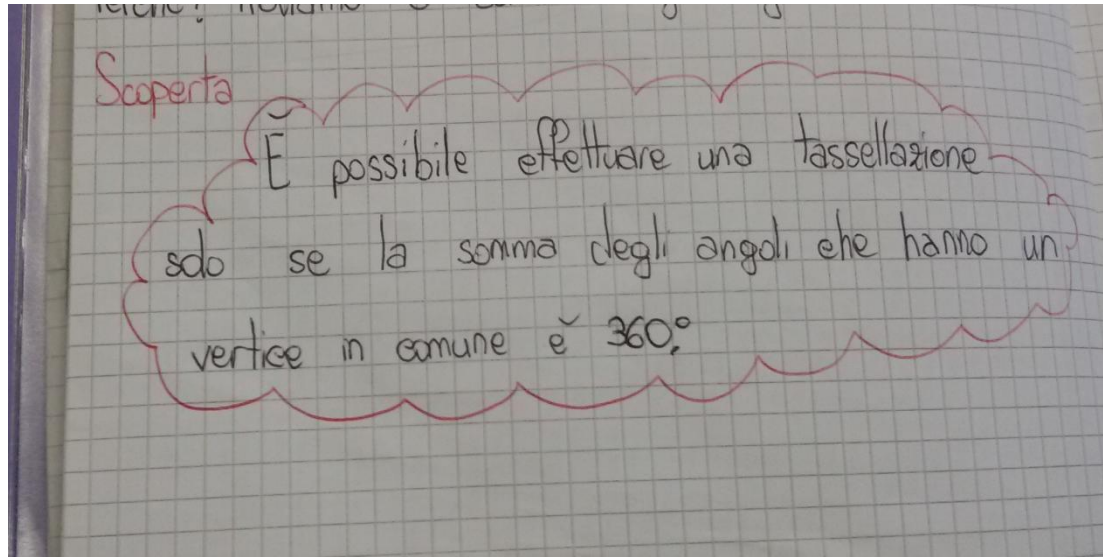 Scoperta
È possibile effettuare una tassellazione
solo se la somma degli angoli che hanno un
vertice in comune è 360°.